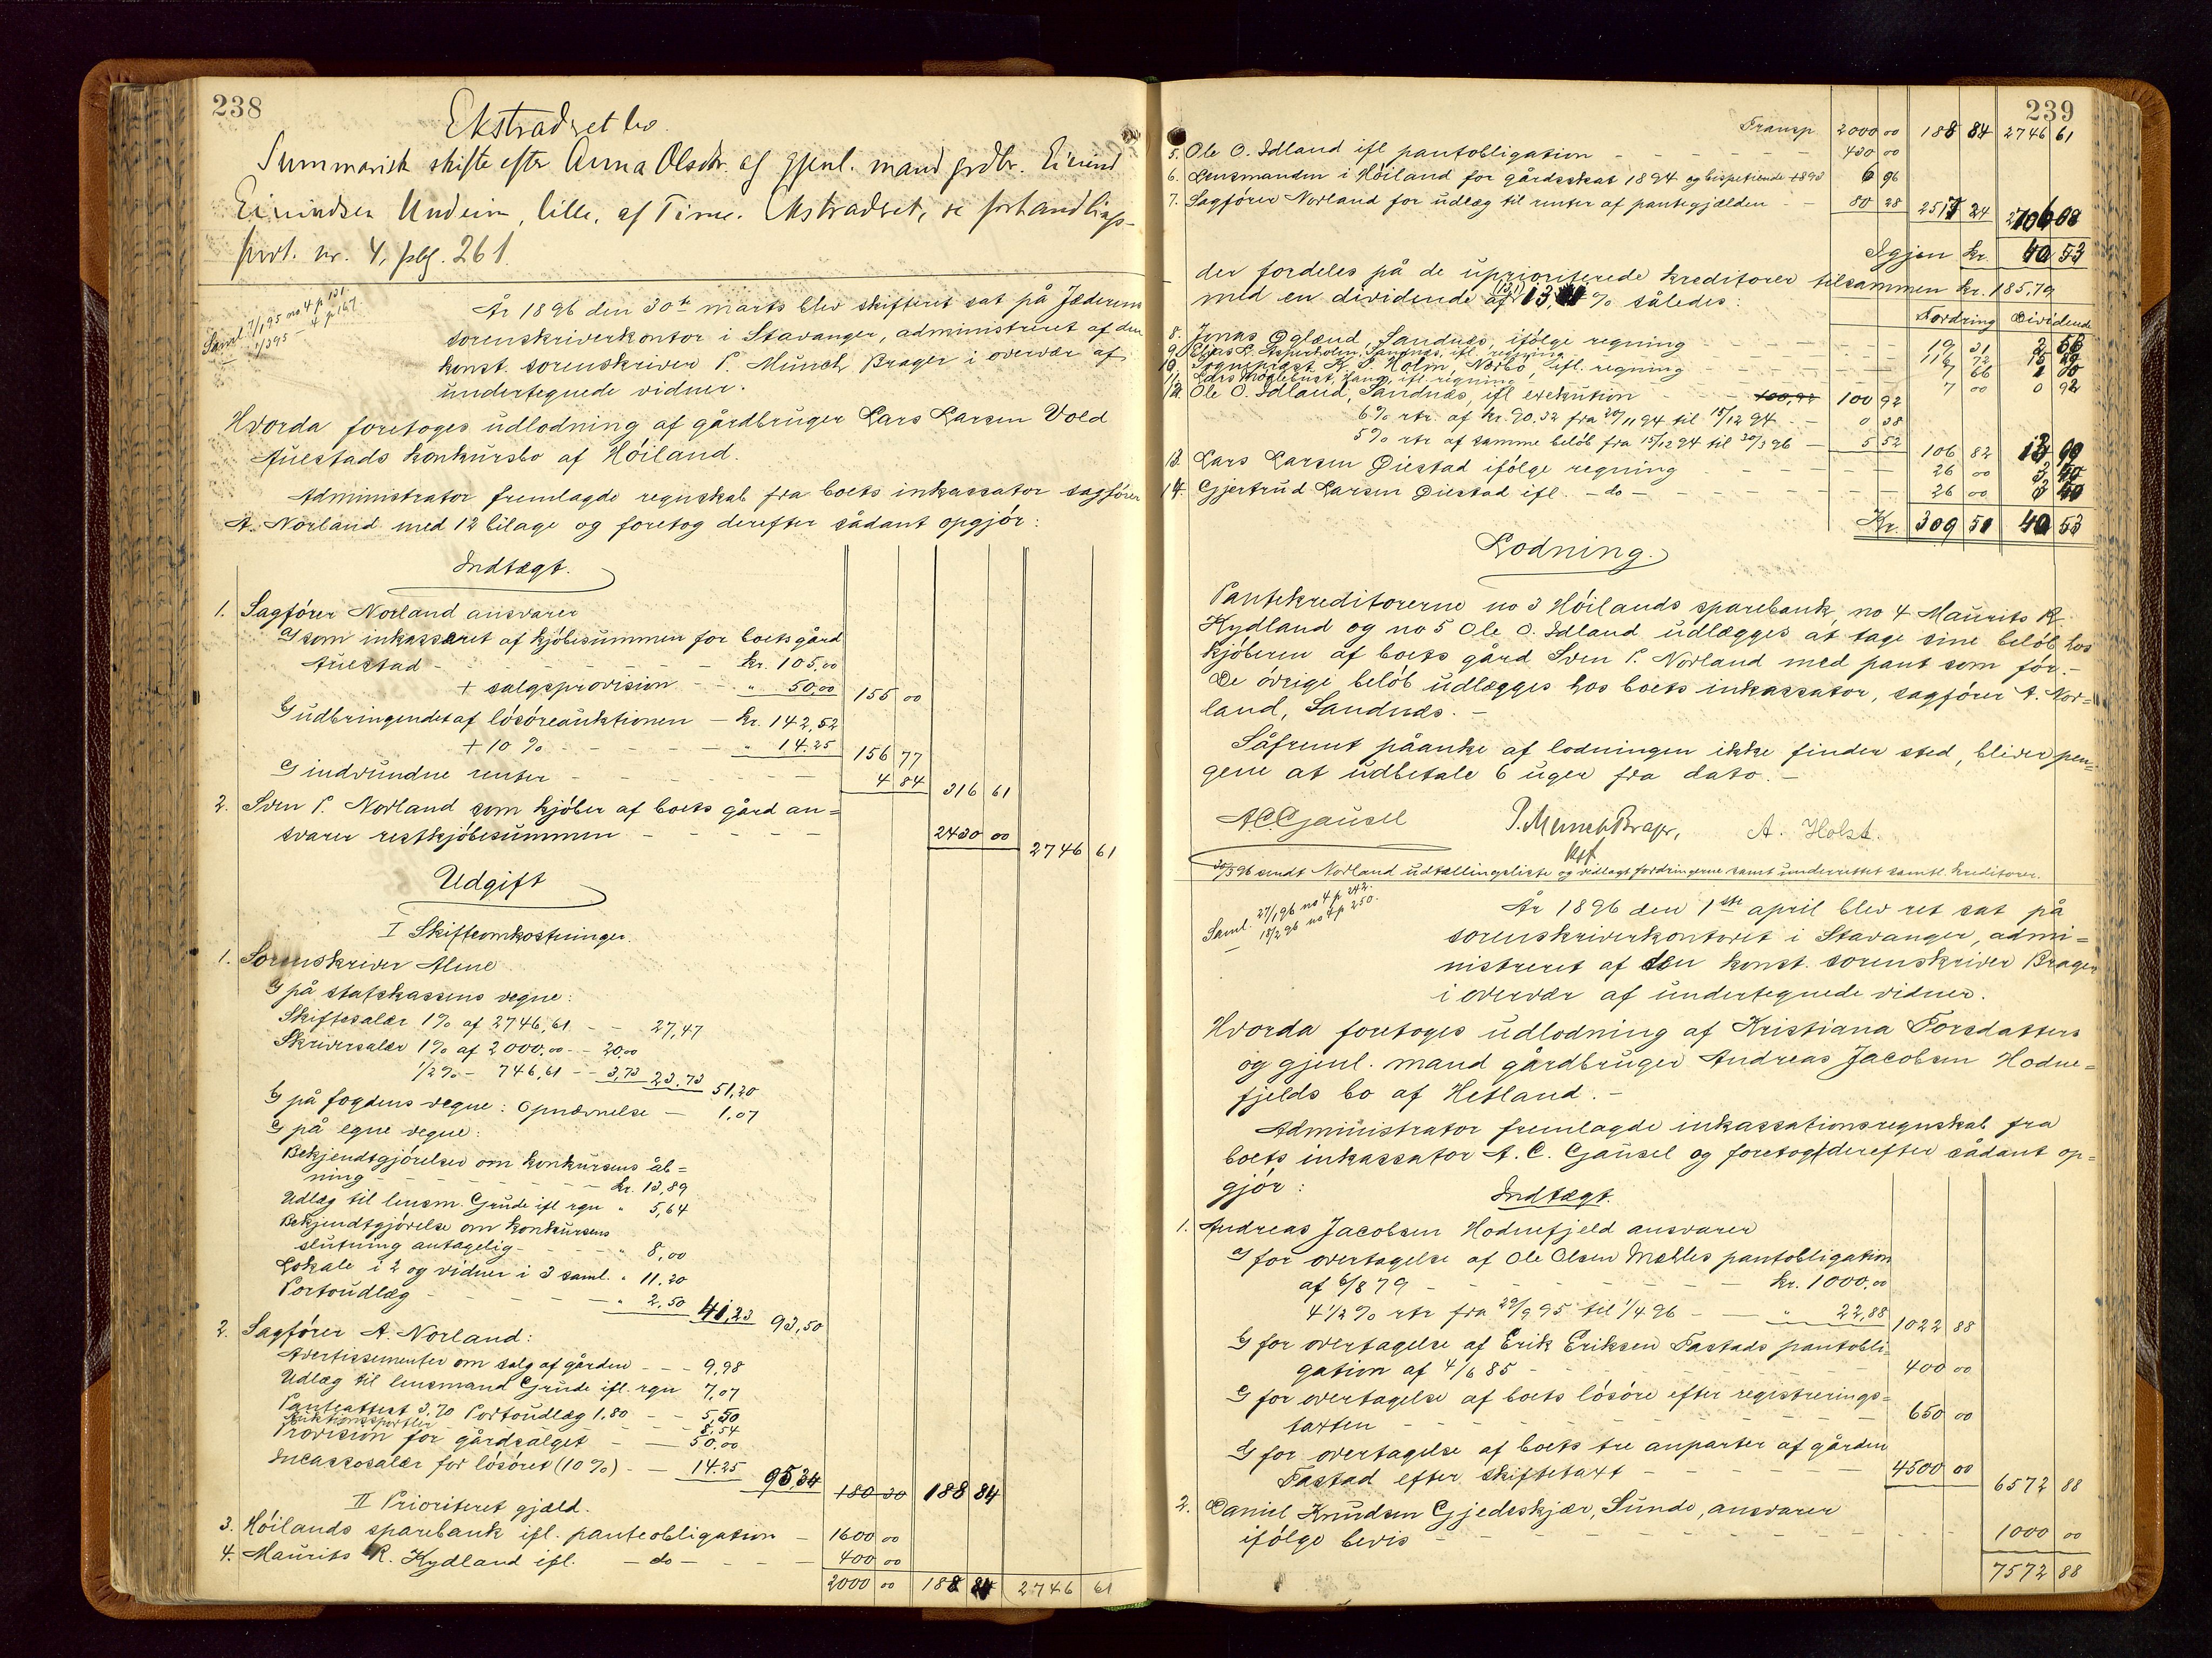 238
Ekstraderet bo.
Summarisk skifte efter Anna Olsdtr. og gjenl. mand grdbr. Eivind
Eivindsen Undeim, lille, af Time. Ekstraderet, se forhandlings-
prot. nr. 4, pag. 261.
Saml. 7/1 95 no 4 p 131.
1/3 95 - 4 p 167.
År 1896 den 30te marts blev skifteret sat på Jæderens
sorenskriverkontor i Stavanger, administreret af den
konst. sorenskriver P. Munch Brager i overvær af
undertegnede vidner.
Hvorda foretoges udlodning af gårdbruger Lars Larsen Vold
Auestads konkursbo af Höiland.
Administrator fremlagde regnskab fra boets inkassator sagfører
A. Norland med 12 bilage og foretog derefter sådant opgjör:
Indtægt.
1. Sagfører Norland ansvarer
a) som inkasseret af kjöbesummen for boets gård
Auestad - - - - - kr. 105,00
+ salgsprovision - - " 50,00 155 00
b) udbringendet af lösöreauktionen - kr. 142,52
+ 10 % - - - - " 14.25 156 77
c) indvundne renter - - - - 4 84 316 61
2. Sven P. Norland som kjöber af boets gård an=
svarer restkjöbesummen - - - - 2430 00 2746 61
Udgift
I Skifteomkostninger.
1. Sorenskriver Alme
a) på statskassens vegne:
Skiftesalær 1% af 2746,61 - - 27,47
Skriversalær 1% af 2000,00 - - 20,00
1/2 % - 746,61 - - 3,73 23.73 51,20
b) på fogdens vegne: Opnævnelse - 1,07
c) på egne vegne:
Bekjendtgjörelser om konkursens åb=
ning - - - - - kr. 13,89
Udlæg til lensm. Grude ifl rgn " 5,64
Bekjendtgjörelse om konkursens
slutning antagelig - - - " 8,00
Lokale i 2 og vidner i 3 saml. " 11.20
Portoudlæg - - - - " 2.50 41,23 93,50
2. Sagfører A. Norland:
Avertissementer om salg af gården - - - 9,98
Udlæg til lensmand Grude ifl. rgn 7,07
Panteattest 3.70 Portoudlæg 1,80 - - 5,50
Auktionssportler - - - 8,54
Provision for gårdsalget - - 50.00
Incassosalær for lösöret (10 %) - - 14.25 95,34 180 30 188 84
II Prioriteret gjæld.
3. Höilands sparebank ifl. panteobligation - 1600 00
4. Maurits R. Kydland ifl. - do - - - - 400 00
2000 00 188 84 2746 61
239
Transp. 2000 00 188 84 2746 61
5. Ole O. Idland ifl pantobligation - - - - - - 430 00
6. Lensmanden i Höiland for gårdsskat 1894 og bispetiende 1893 6 96
7. Sagfører Norland for udlæg til renter af pantegjælden - - 80 28 2517 24 2706 08
Igjen kr. 40 53
der fordeles på de uprioriterede kreditorer tilsammen kr. 185,79
med en dividende af (13,1) % således:
Fordring Dividende
8. Jonas Øglænd, Sandnæs, ifölge regning - - - - - 19 31
9. Sandnæs, ifl. regning - - - - 116 72
10. Sogneprest K. S. Holm, Nærbö, ifl. regning - - - - 7 66 1 00
11. ifl. regning - - - - 7 00 0 92
12. Ole O. Idland, Sandnæs, ifl exekution - - 100,92 100 92
6% rtr. af kr. 90.32 fra 20/11 94 til 15/12 94 - - 0 38
5% rtr af samme belöb fra 15/12 94 til 30/3 96 - 5 52 106 82
13. Lars Larsen Öiestad ifölge regning - - - - 26 00 3 40
14. Gjertrud Larsen Öiestad ifl. - do - - - - - 26 00 3 40
Kr. 309 51 40 53
Lodning.
Pantekreditorerne no 3 Höilands sparebank, no 4 Maurits R.
Kydland og no 5 Ole O. Idland udlægges at tage sine belöb hos
kjöberen af boets gård Sven P. Norland med pant som för. -
De övrige belöb udlægges hos boets inkassator, sagfører A. Nor=
land, Sandnæs. -
Såfremt påanke af lodningen ikke finder sted, bliver pen=
gene at udbetale 6 uger fra dato. -
A.C. Gausel P. Munch Brager, A. Holst.
kst
30/3 96 sendt Norland udtællingsliste og vedlagt fordringerne samt underrettet samtl. kreditorer.
Saml. 27/1 96 no 4 p 242.
18/2 96 no 4 p 250.
År 1896 den 1ste april blev ret sat på
sorenskriverkontoret i Stavanger, admi=
nistreret af den konst. sorenskriver Brager
i overvær af undertegnede vidner.
Hvorda foretoges udlodning af Kristiana Torsdatters
og gjenl. mand gårdbruger Andreas Jacobsen Hodne=
fjelds bo af Hetland. -
Administrator fremlagde inkassationsregnskab fra
boets inkassator A. C. Gausel og foretog derefter sådant op=
gjör:
Indtægt.
1. Andreas Jacobsen Hodnefjeld ansvarer
a) for overtagelse af Ole Olsen Mæhles pantobligation
af 6/8 79 - - - - - - kr. 1000,00
4 1/2 % rtr fra 29/9 95 til 1/4 96 - - " 22,88 1022 88
b) for overtagelse af Erik Eriksen Tastads pantobli=
gation af 4/6 85 - - - - - 400 00
c) for overtagelse af boets lösöre efter registrerings=
taxten - - - - - - 650 00
d) for overtagelse af boets tre anparter af gården
Tastad efter skiftetaxt - - - - 4500 00 6572 88
2. Daniel Knudsen Gjedeskjær, Sunde, ansvarer
ifölge bevis - - - - - - 1000 00
7572 88